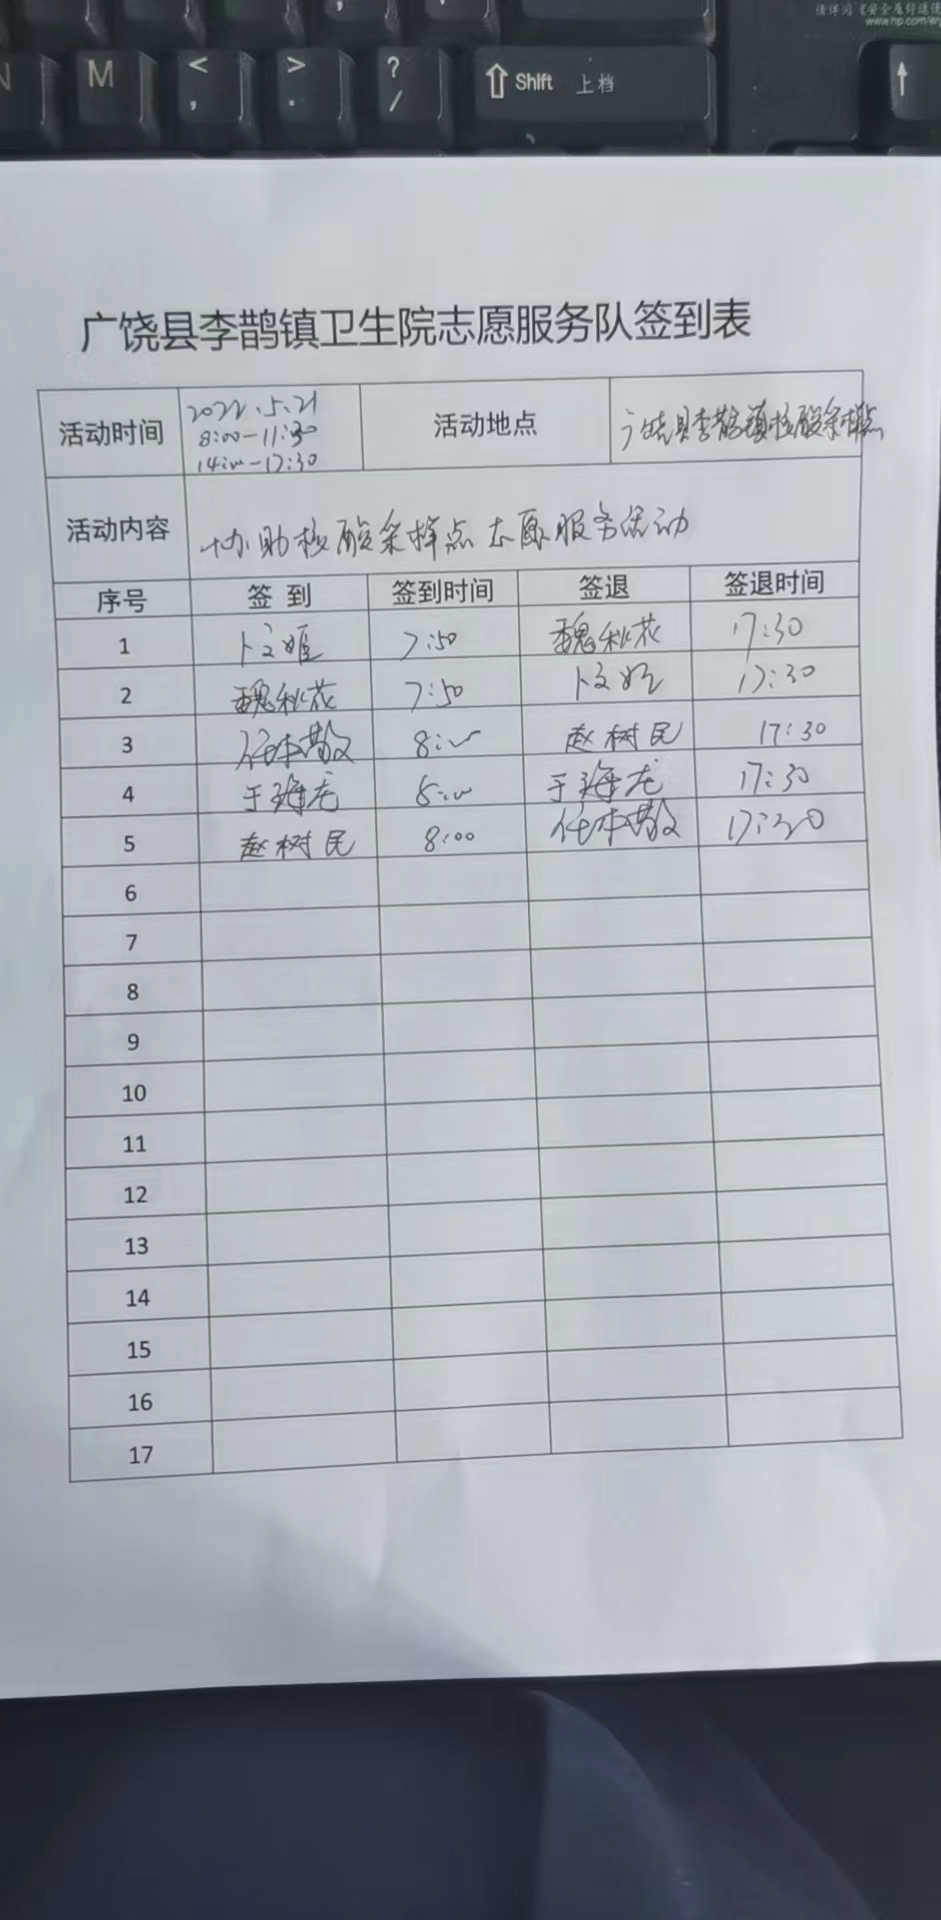 请详阅《安全及舒适使
www.hp.com/er
N M < , > . ? / Shift 上档
广饶县李鹊镇卫生院志愿服务队签到表
活动时间 2022.5.21 活动地点 广饶县李鹊镇核酸采样点
8:00-11:30
14:00-17:30
活动内容 协助核酸采样点志愿服务活动
序号 签 到 签到时间 签退 签退时间
1 7:50 魏秋花 17:30
2 魏秋花 7:50 17:30
3 任本敬 8:00 赵树民 17:30
4 于海龙 8:00 于海龙 17:30
5 赵树民 8:00 任本敬 17:30
6
7
8
9
10
11
12
13
14
15
16
17